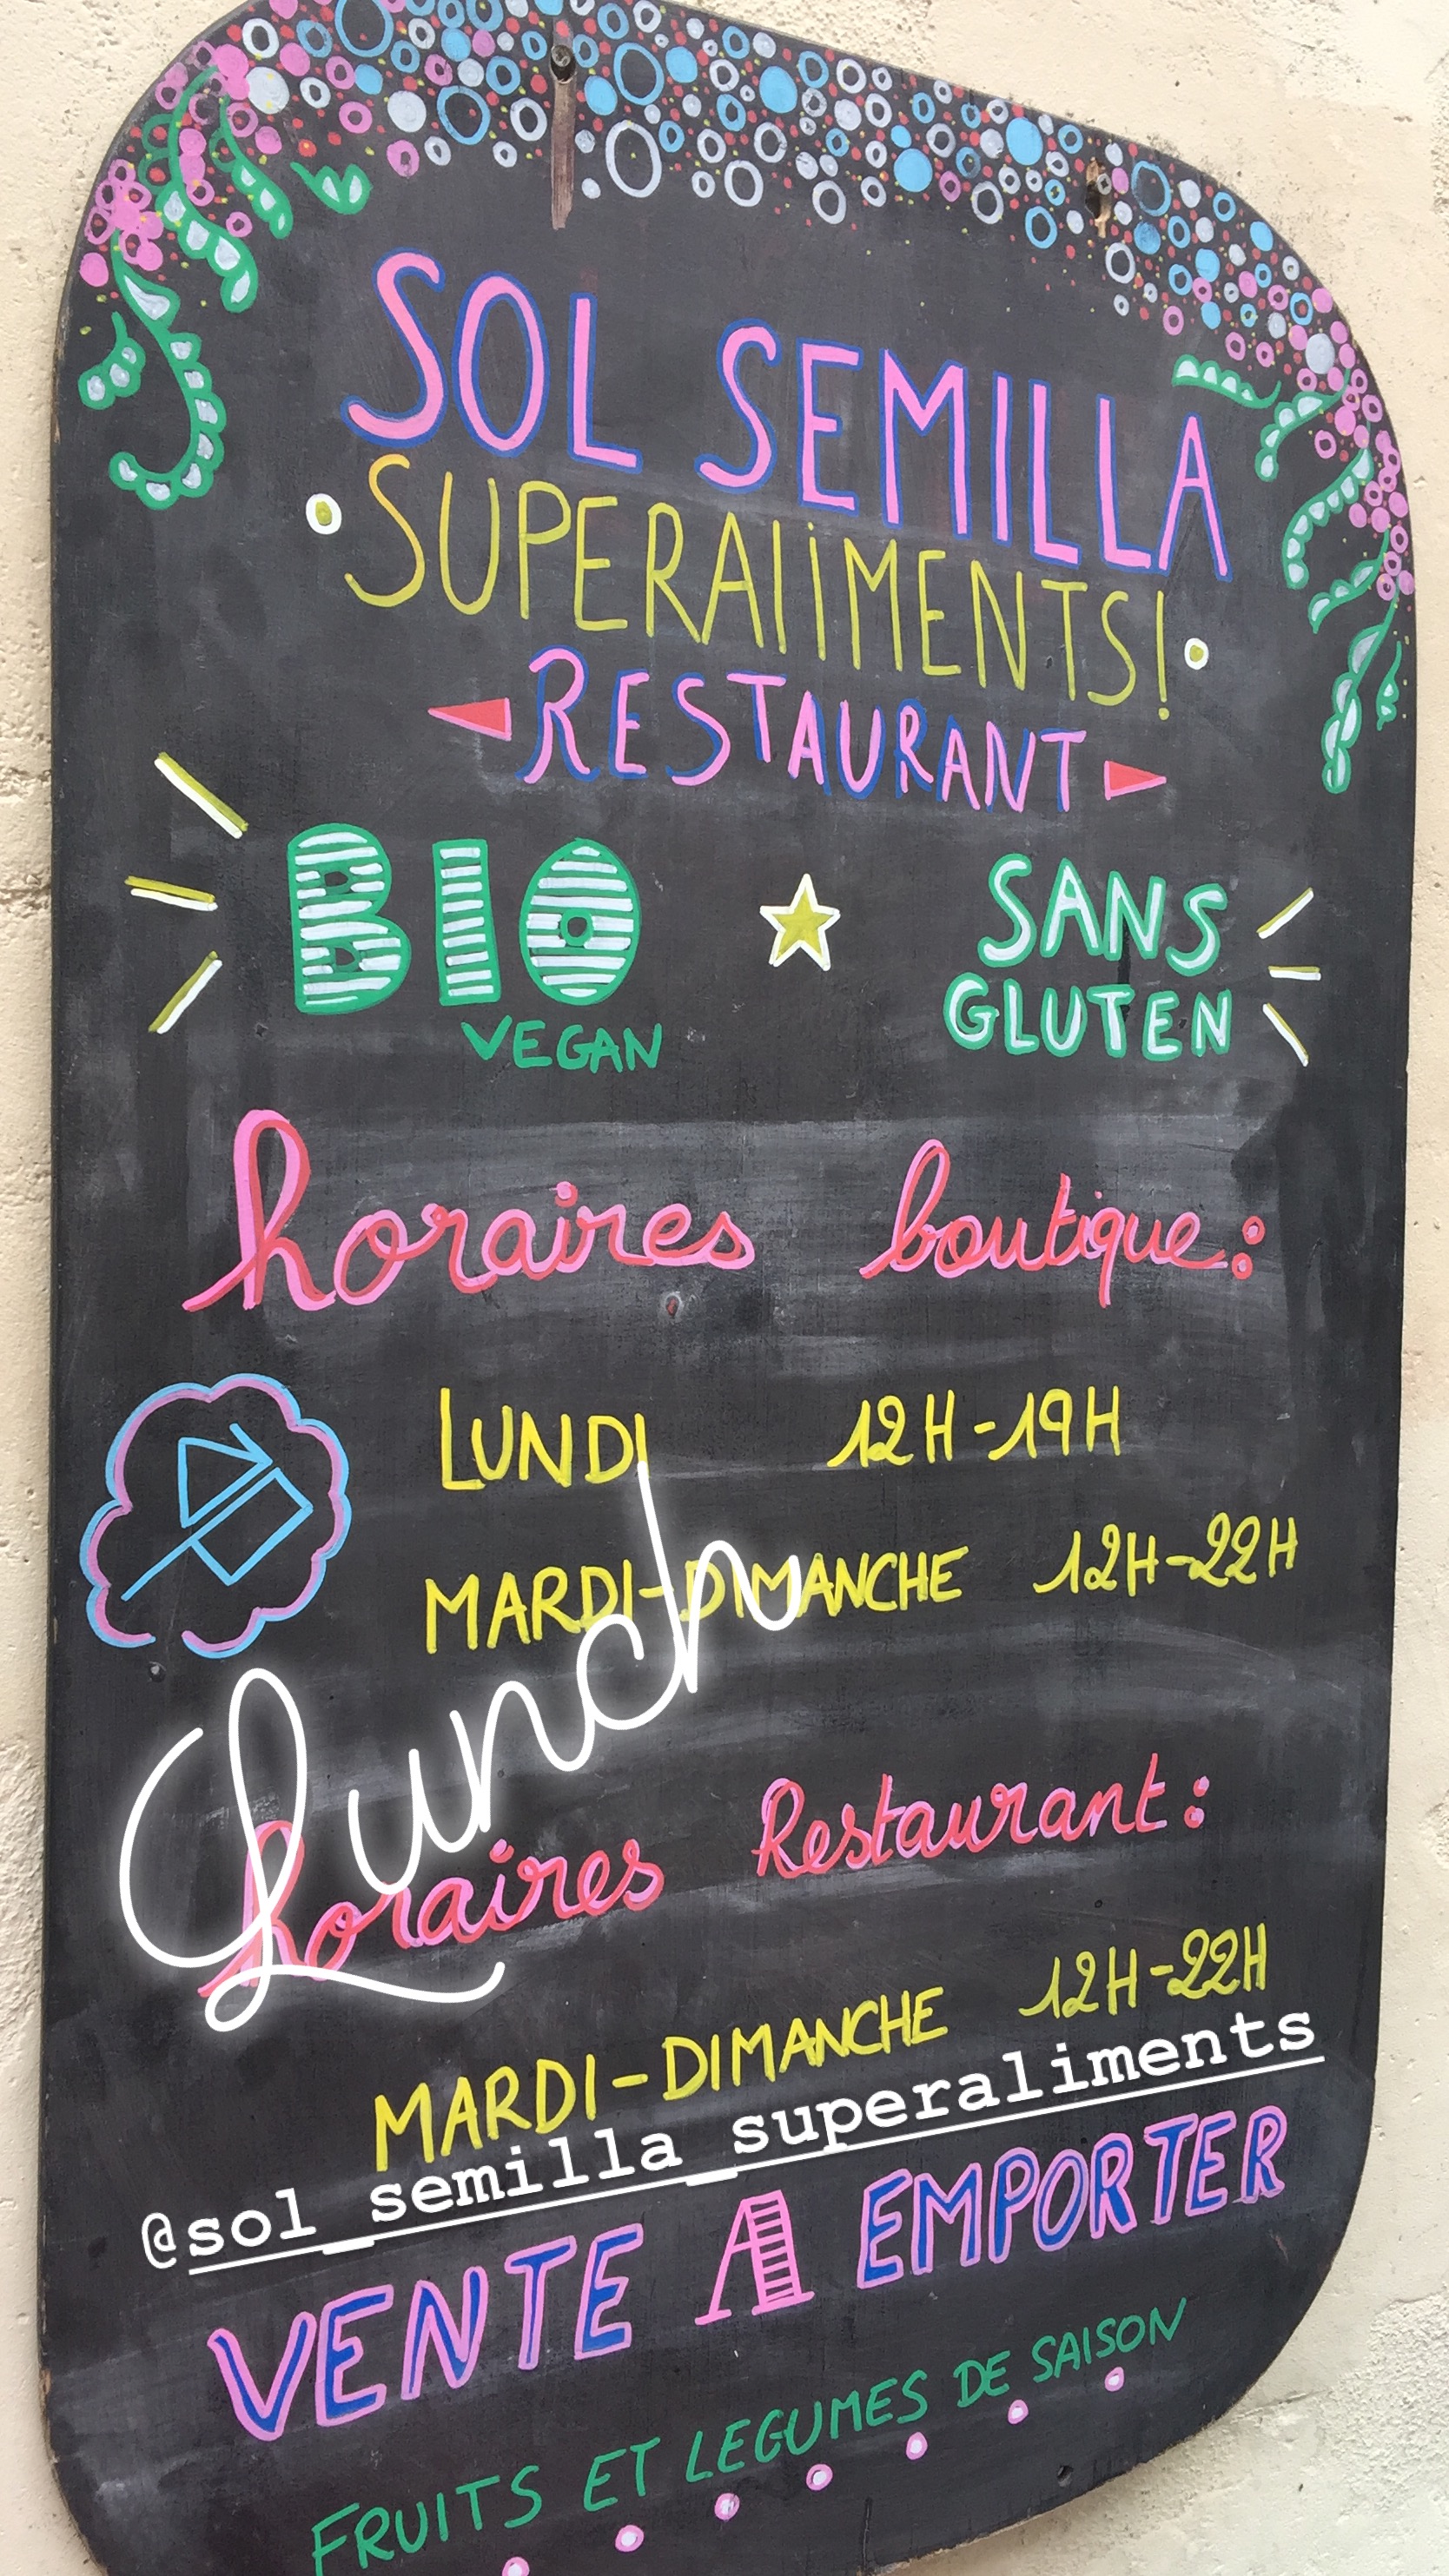 SOL SEMILLA
SUPERALIMENTS!
RESTAURANT
BIO
VEGAN
SANS
GLUTEN
horaires boutique:
LUNDI 12H-19H
MARDI-DIMANCHE 12H-22H
Lunch
horaires Restaurant:
MARDI-DIMANCHE 12H-22H
@sol_semilla_superaliments
VENTE A EMPORTER
FRUITS ET LEGUMES DE SAISON